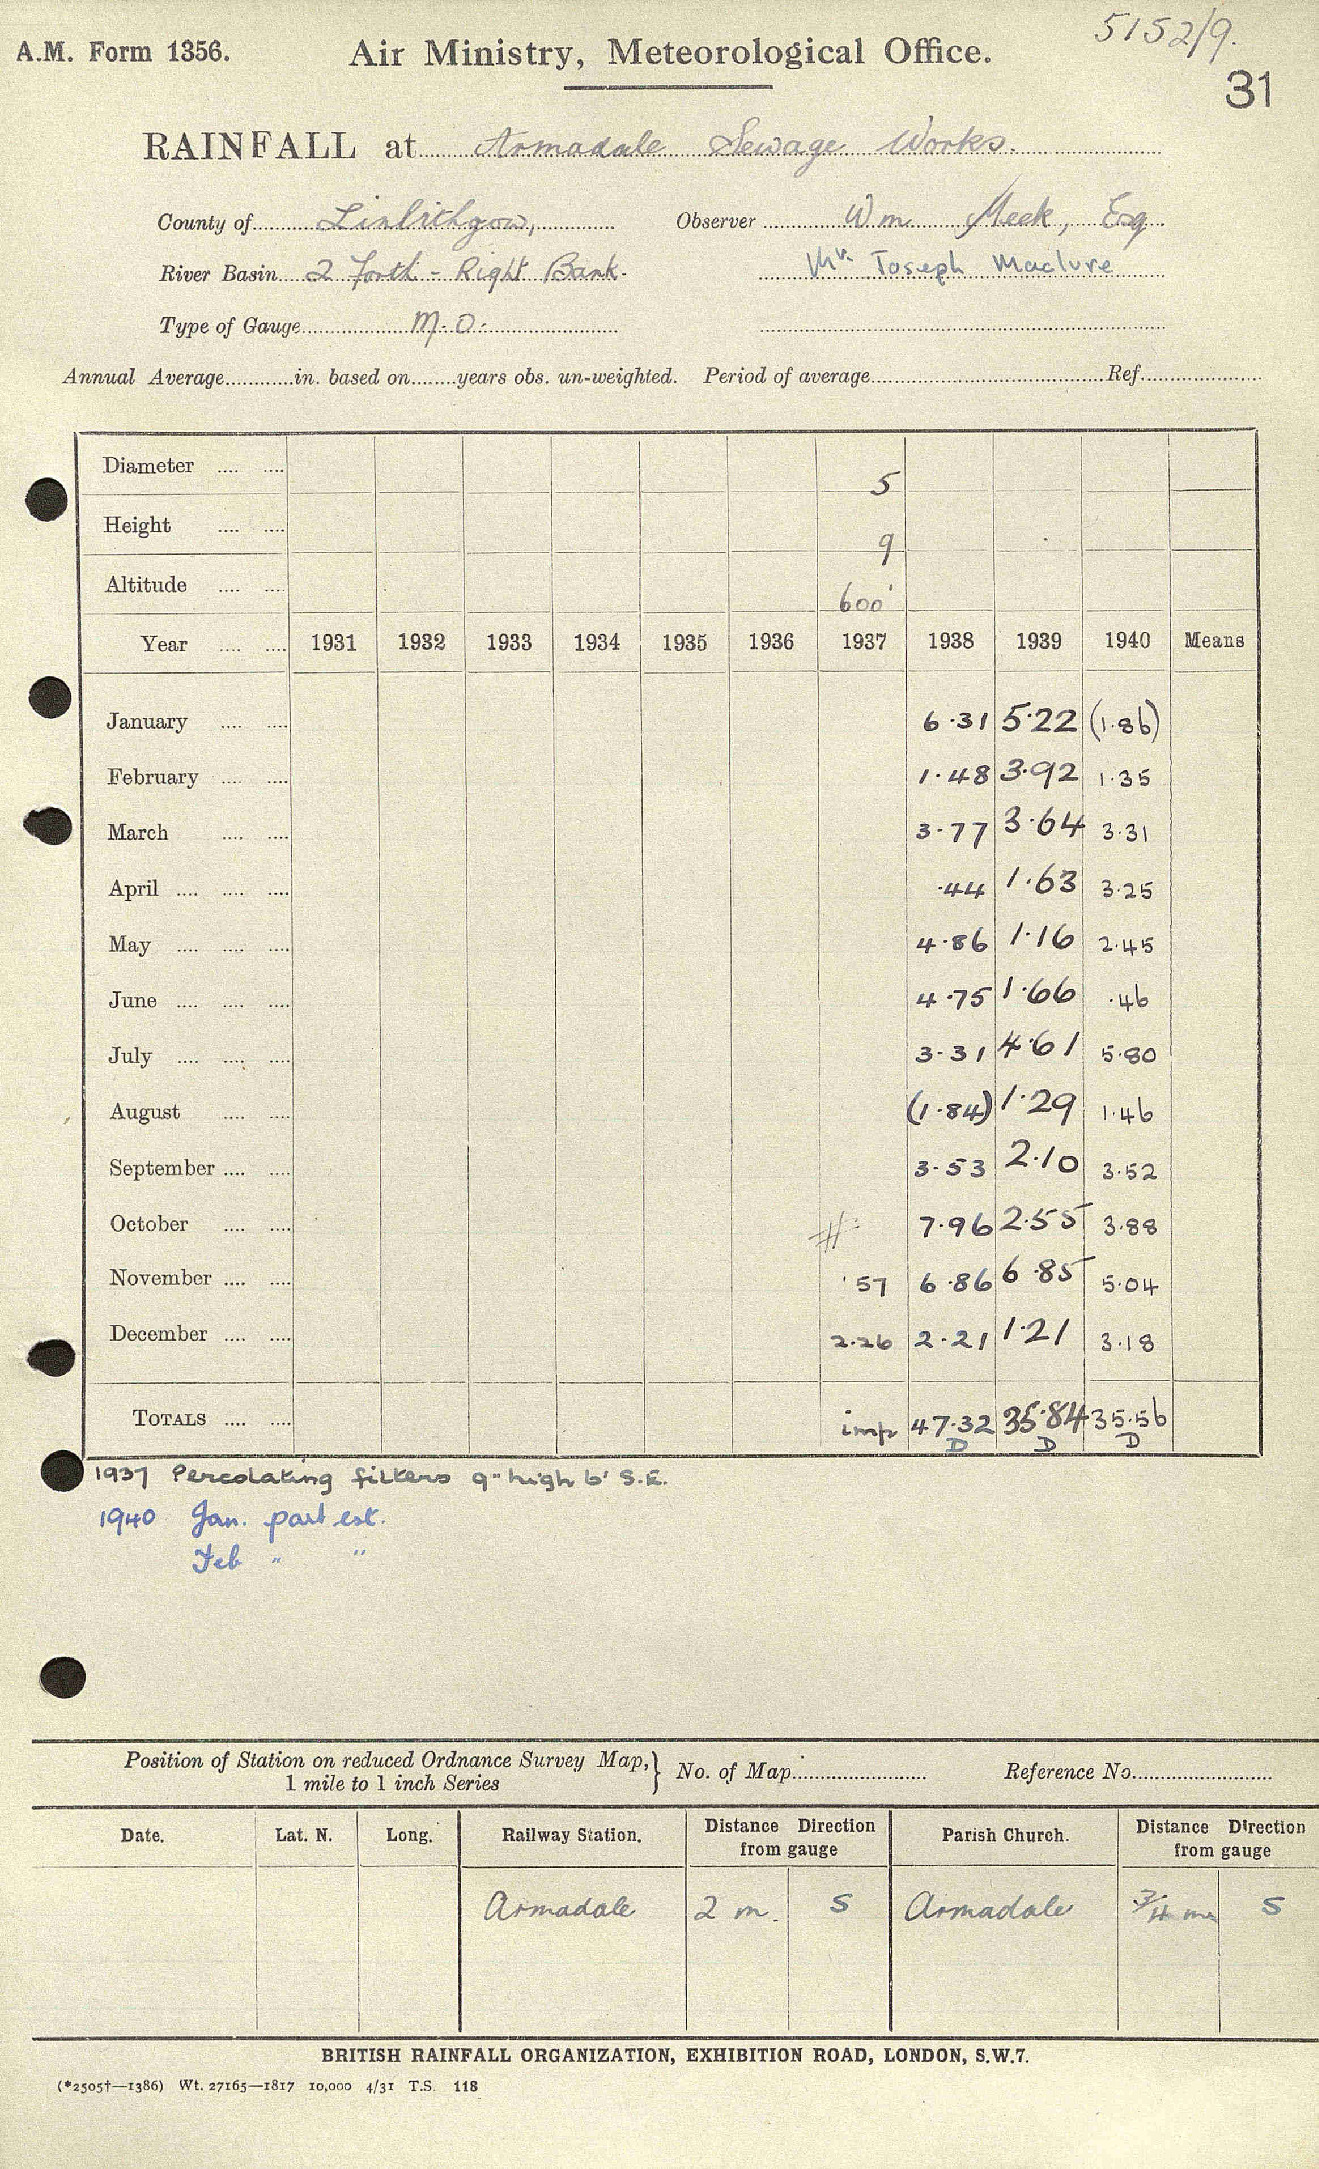 5152/9.
A.M. Form 1356. Air Ministry, Meteorological Office.
31
RAINFALL at Armadale Sewage Works.
County of Linlithgow, Observer Wm Meek, Esq
River Basin 2 Forth - Right Bank. Mr Joseph Maclure
Type of Gauge M.O.
Annual Average............in. based on........years obs. un-weighted. Period of average............Ref............
Diameter .... .... 5
Height .... .... 9
Altitude .... .... 600'
Year .... .... 1931 1932 1933 1934 1935 1936 1937 1938 1939 1940 Means
January .... .... 6.31 5.22 (1.86)
February .... .... 1.48 3.92 1.35
March .... .... 3.77 3.64 3.31
April .... .... .... .44 1.63 3.25
May .... .... .... 4.86 1.16 2.45
June .... .... .... 4.75 1.66 .46
July .... .... .... 3.31 4.61 5.80
August .... .... (1.84) 1.29 1.46
September .... .... 3.53 2.10 3.52
October .... .... 7.96 2.55 3.88
November .... .... .57 6.86 6.85 5.04
December .... .... 2.26 2.21 1.21 3.18
TOTALS .... .... imp 47.32 35.84 35.56
D D D
1937 Percolating filters 9" high 6' S.E.
1940 Jan. part est.
Feb " "
Position of Station on reduced Ordnance Survey Map, } No. of Map............ Reference No............
1 mile to 1 inch Series
Date. Lat. N. Long. Railway Station. Distance Direction from gauge Parish Church. Distance Direction from gauge
Armadale 2 m. S Armadale 3/4 m S
BRITISH RAINFALL ORGANIZATION, EXHIBITION ROAD, LONDON, S.W.7.
(*2505†—1386) Wt. 27165—1817 10,000 4/31 T.S. 118